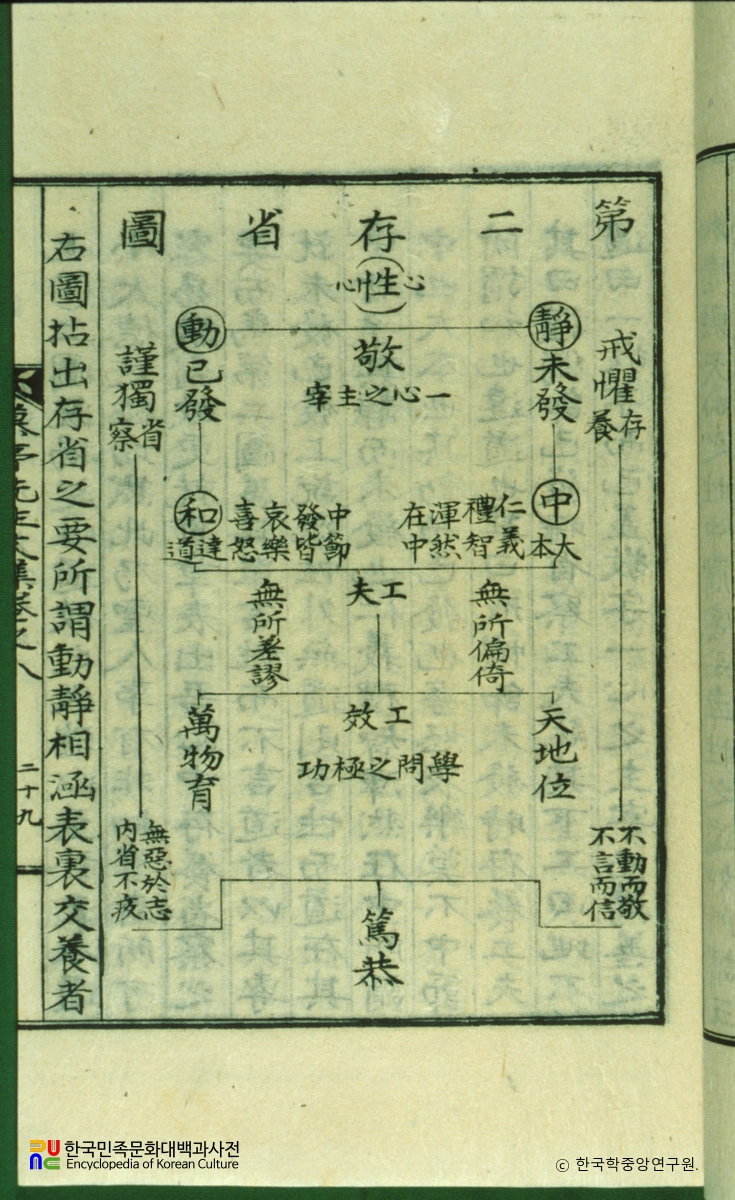 第二存省圖
心性心
靜
未發
動
已發
敬
一心之主宰
戒懼
存養
謹獨
省察
中
大本
仁義
禮智
渾然
在中
和
達道
中節
發皆
哀樂
喜怒
工夫
無所偏倚
無所差謬
工效
天地位
萬物育
學問之極功
不動而敬
不言而信
無惡於志
內省不疚
篤恭
右圖拈出存省之要所謂動靜相涵表裏交養者
先生文集卷之八
二十九
한국민족문화대백과사전
Encyclopedia of Korean Culture
ⓒ 한국학중앙연구원.